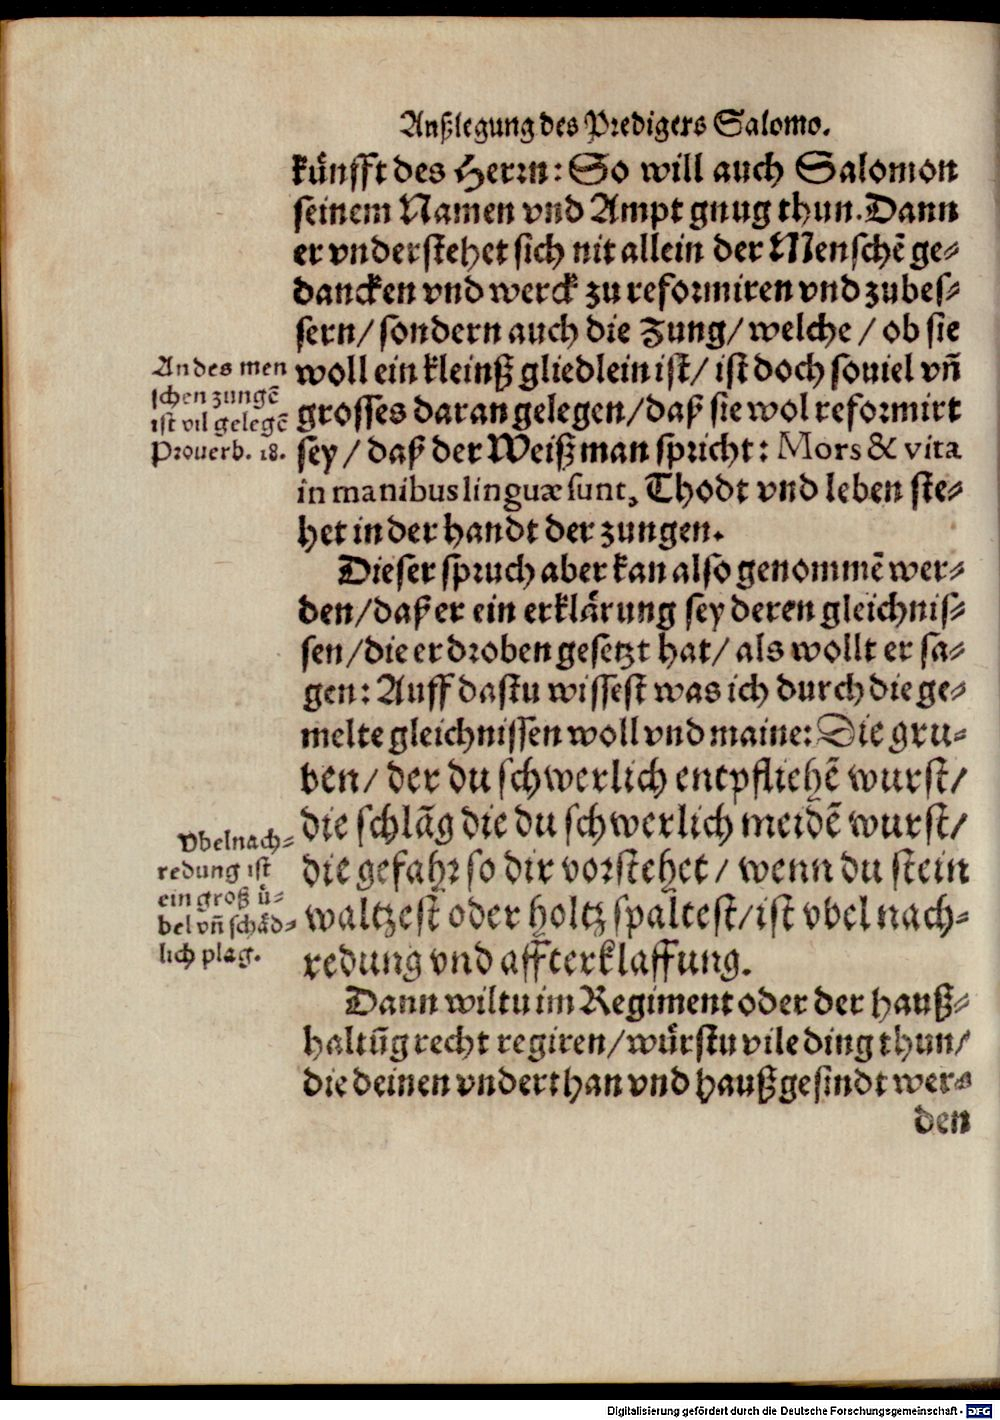 Außlegung des Predigers Salomo.
kůnfft des Herrn: So will auch Salomon
seinem Namen vnd Ampt gnug thun. Dann
er vnderstehet sich nit allein der Menschẽ ge-
dancken vnd werck zu reformiren vnd zubes-
sern/ sondern auch die Zung/ welche / ob sie
woll ein kleinß gliedlein ist/ ist doch souiel vñ
grosses daran gelegen/ daß sie wol reformirt
sey / daß der Weißman spricht: Mors & vita
in manibus linguæ sunt, Thodt vnd leben ste-
het in der handt der zungen.
An des men
schen zungẽ
ist vil gelegẽ
Prouerb. 18.
Dieser spruch aber kan also genommẽ wer-
den/ daß er ein erklårung sey deren gleichnis-
sen/ die er droben gesetzt hat/ als wollt er sa-
gen: Auff dastu wissest was ich durch die ge-
melte gleichnissen woll vnd maine: Die gru-
ben/ der du schwerlich entpfliehẽ wurst/
die schlãg die du schwerlich meidẽ wurst/
die gefahr so dir vorstehet / wenn du stein
waltzest oder holtz spaltest/ ist vbel nach-
redung vnd affterklaffung.
Vbelnach-
redung ist
ein groß ů-
bel vñ schåd-
lich plag.
Dann wiltu im Regiment oder der hauß-
haltũg recht regiren/ wůrstu vile ding thun/
die deinen vnderthan vnd haußgesindt wer-
den
Digitalisierung gefördert durch die Deutsche Forschungsgemeinschaft - DFG